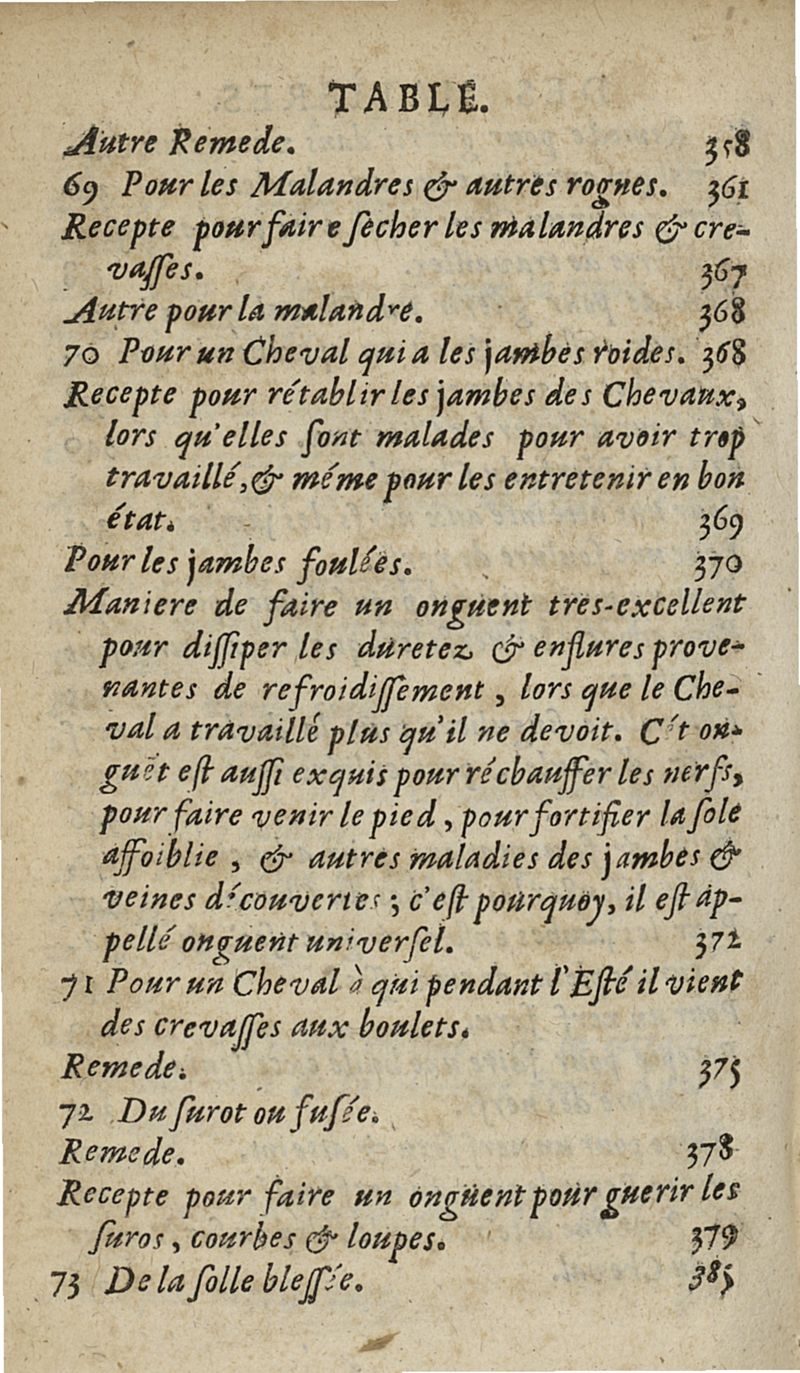 TABLE.
Autre Remede. 358
69 Pour les Malandres & autres rognes. 361
Recepte pour faire ſecher les malandres & cre-
vaſſes. 367
Autre pour la malandre. 368
70 Pour un Cheval qui a les jambes roides. 368
Recepte pour rétablir les jambes des Chevaux,
lors qu'elles ſont malades pour avoir trop
travaillé, & méme pour les entretenir en bon
état. 369
Pour les jambes foulées. 370
Maniere de faire un onguent tres-excellent
pour diſſiper les duretez & enflures prove-
nantes de refroidiſſement, lors que le Che-
val a travaillé plus qu'il ne devoit. Cét on-
guẽt eſt auſſi exquis pour réchauffer les nerfs,
pour faire venir le pied, pour fortifier la ſole
affoiblie, & autres maladies des jambes &
veines découvertes; c'eſt pourquoy, il eſt ap-
pellé onguent univerſel. 372
71 Pour un Cheval à qui pendant l'Eſté il vient
des crevaſſes aux boulets.
Remede. 375
72 Du ſurot ou fuſée.
Remede. 378
Recepte pour faire un onguent pour guerir les
ſuros, courbes & loupes. 379
73 De la ſolle bleſſée. 385